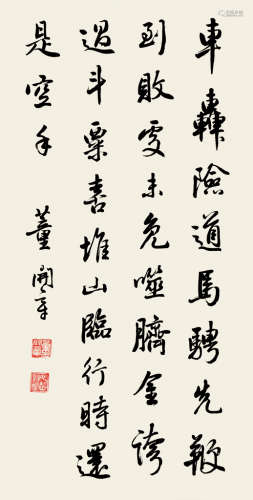 車轟險道馬騁先鞭
到敗處未免噬臍金誇
過斗粟喜堆山臨行時還
是空手 董開章